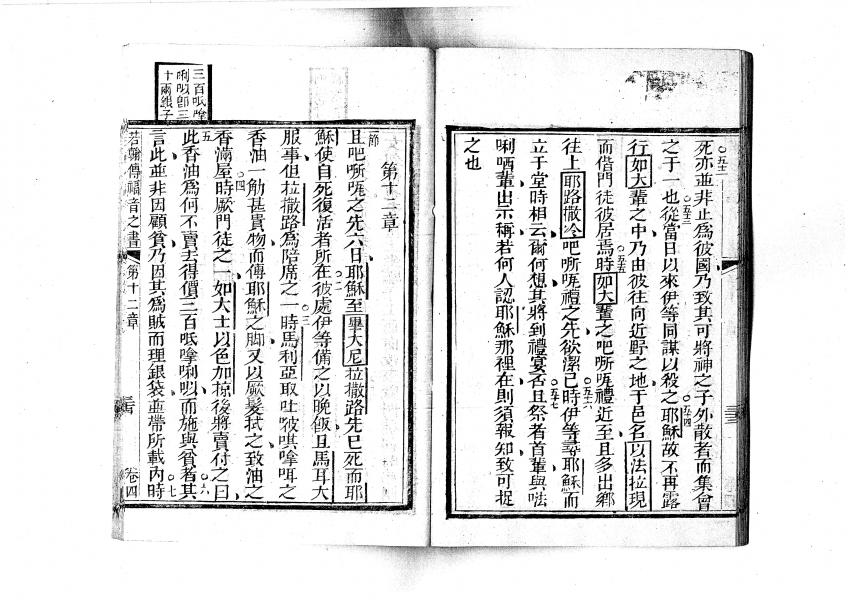 死亦並非止為彼國乃致其可將神之子外散者而集會
之于一也從當日以來伊等同謀以殺之耶穌故不再露
行如大輩之中乃由彼往向近野之地于邑名以法拉現
而偕門徒彼居焉時如大輩之吧㗭𠵽禮近至且多出鄉
往上耶路撒冷吧㗭𠵽禮之先欲潔己時伊等尋耶穌而
立于堂時相云爾何想其將到禮宴否且祭者首輩與㕸
唎哂輩出示稱若何人認耶穌那裡在則須報知致可捉
之也
第十二章
節
且吧㗭𠵽之先六日耶穌至畢大尼拉撒路先已死而耶
穌使自死復活者所在彼處伊等備之以晚飯且馬耳大
服事但拉撒路為陪席之一時馬利亞取吐𠹌唭嗱咡之
香油一觔甚貴物而傅耶穌之脚又以厥髮拭之致油之
香滿屋時厥門徒之一如大士以色加掠後將賣付之曰
此香油為何不賣去得價三百呧嗱唎㕥而施與貧者其
言此並非因顧貧乃因其為賊而理銀袋並帶所載內時
若翰傳福音之書
第十二章
卷四
三百呧嗱
唎㕥即三
十兩銀子